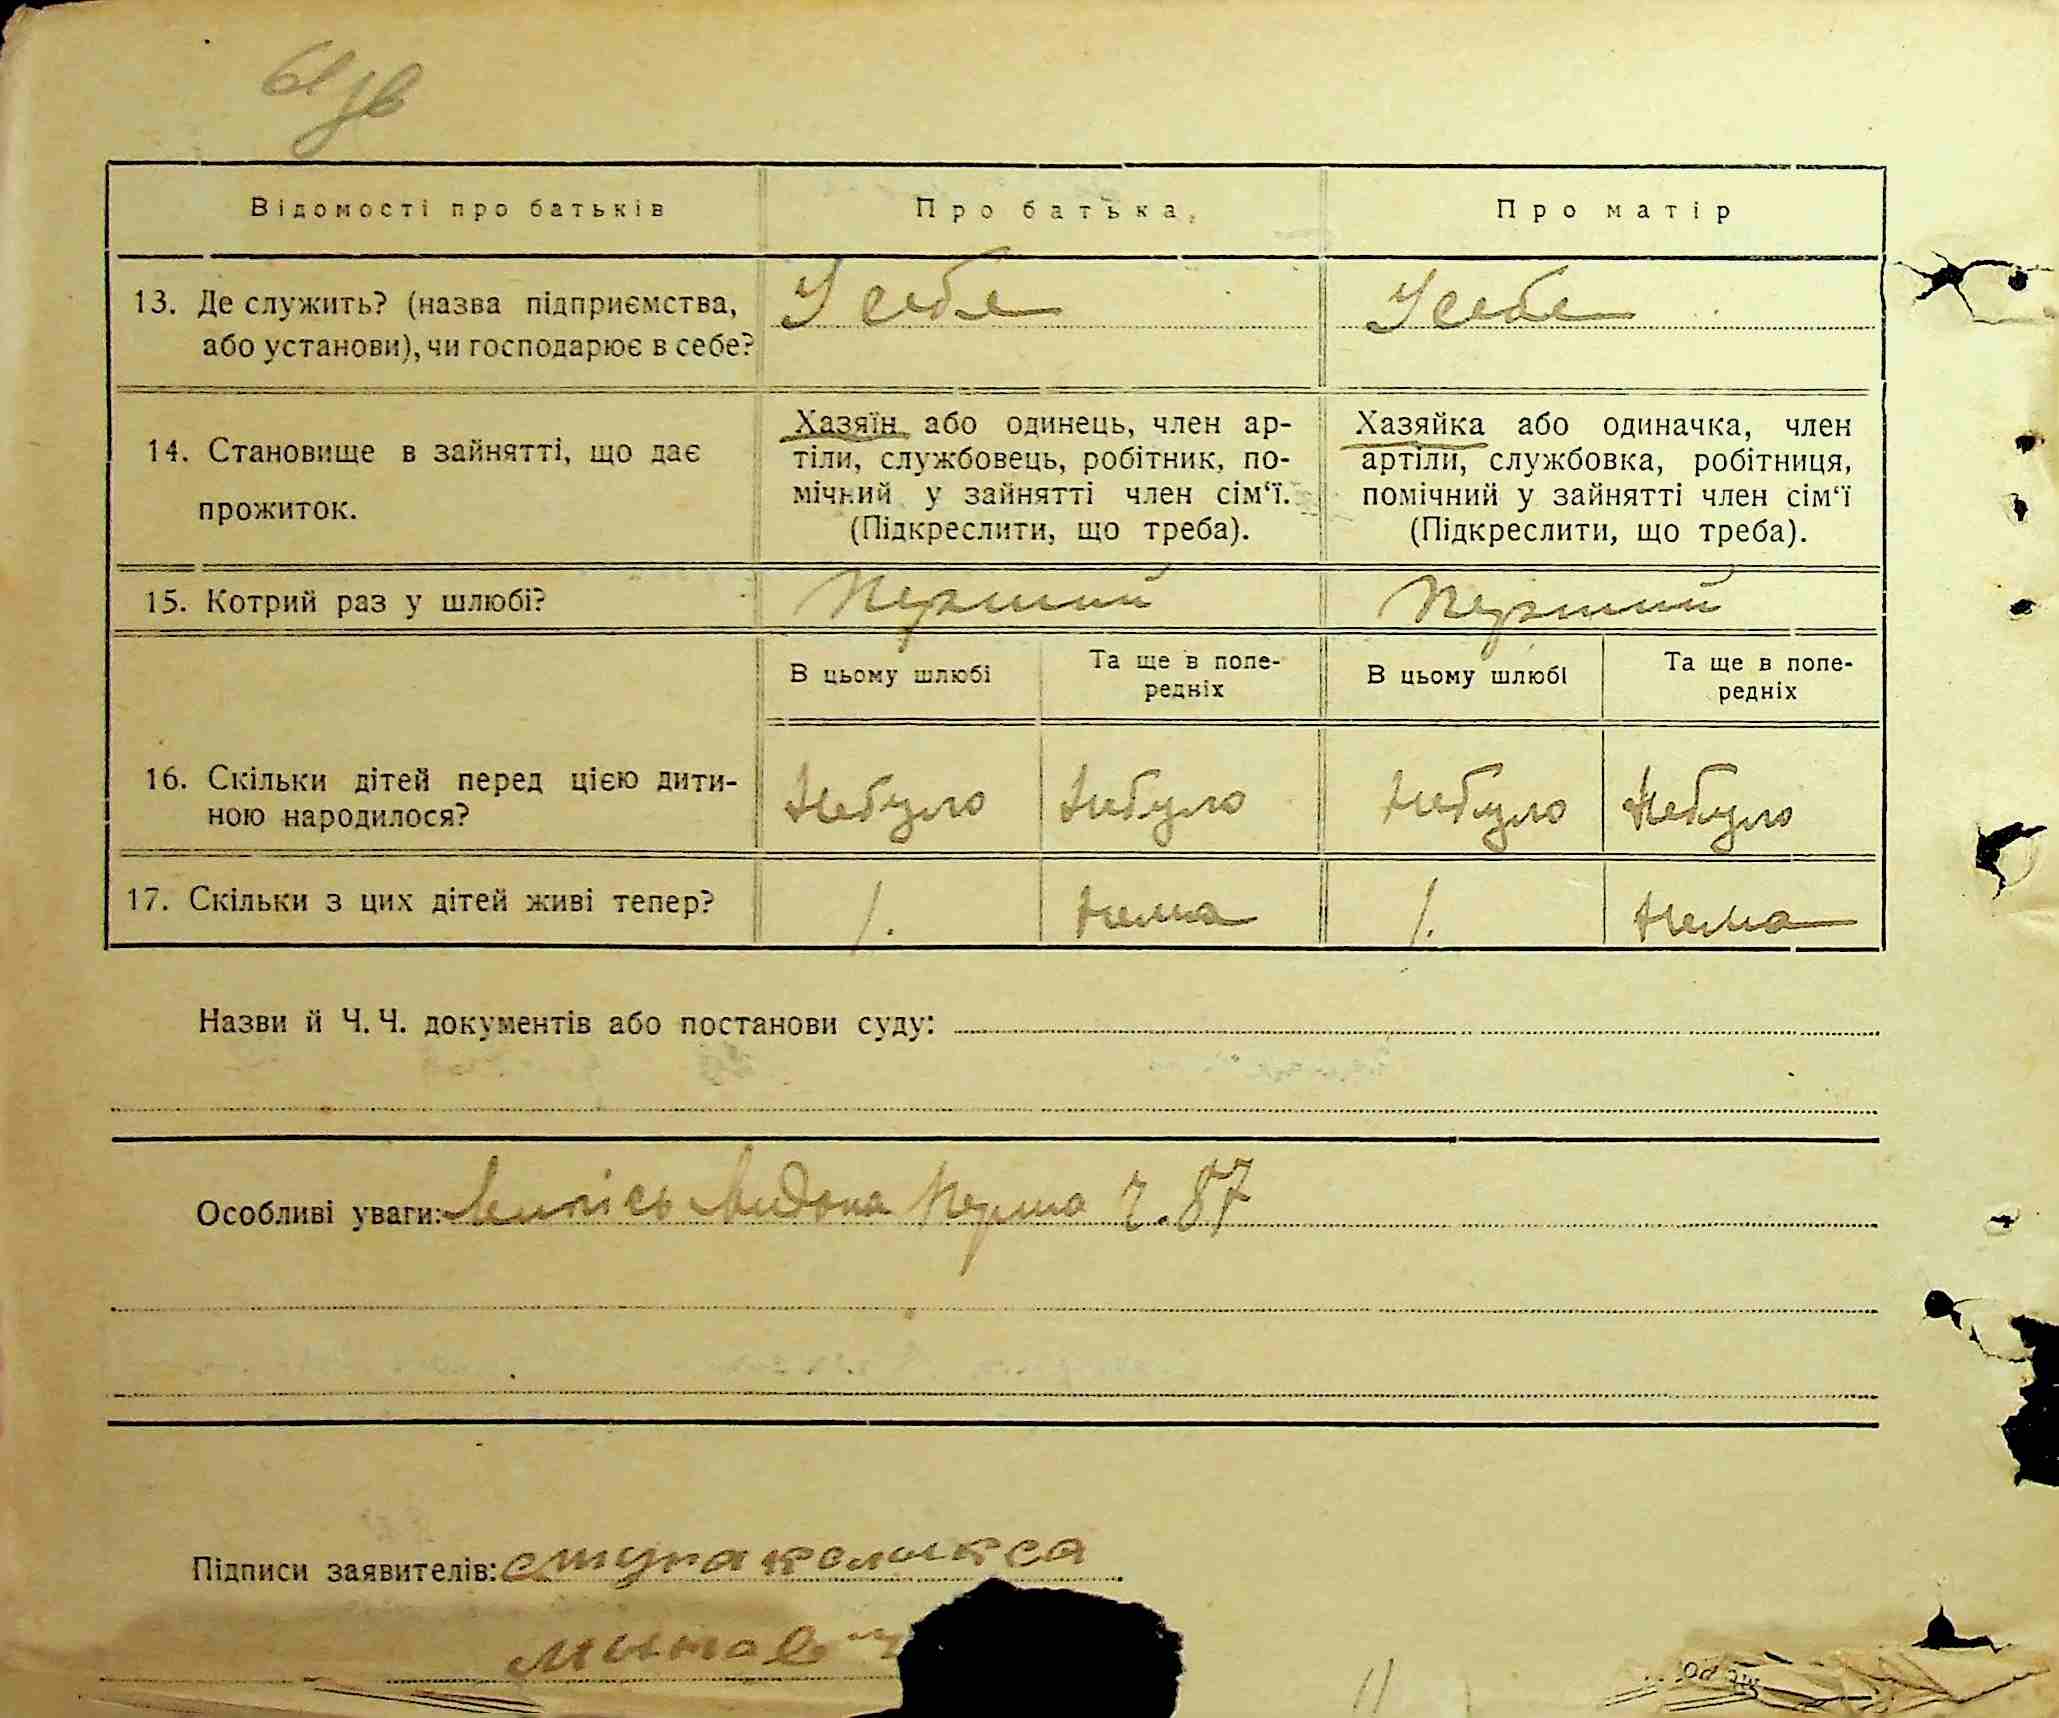 Відомості про батьків Про батька Про матір
13. Де служить? (назва підприємства, або установи), чи господарює в себе? У себя У себе
14. Становище в зайнятті, що дає прожиток.
Хазяїн або одинець, член ар-
тіли, службовець, робітник, по-
мічний у зайнятті член сім‘ї.
(Підкреслити, що треба).
Хазяйка або одиначка, член
артіли, службовка, робітниця,
помічний у зайнятті член сім‘ї
(Підкреслити, що треба).
15. Котрий раз у шлюбі? Перший Перший
В цьому шлюбі Та ще в попе-
редніх В цьому шлюбі Та ще в попе-
редніх
16. Скільки дітей перед цією дити-
ною народилося? Небуло Небуло Небуло Небуло
17. Скільки з цих дітей живі тепер? 1. Нема 1. Нема
Назви й Ч. Ч. документів або постанови суду:
Особливі уваги: Випісь Видана Перша Ч. 87
Підписи заявителів: ступакаликса